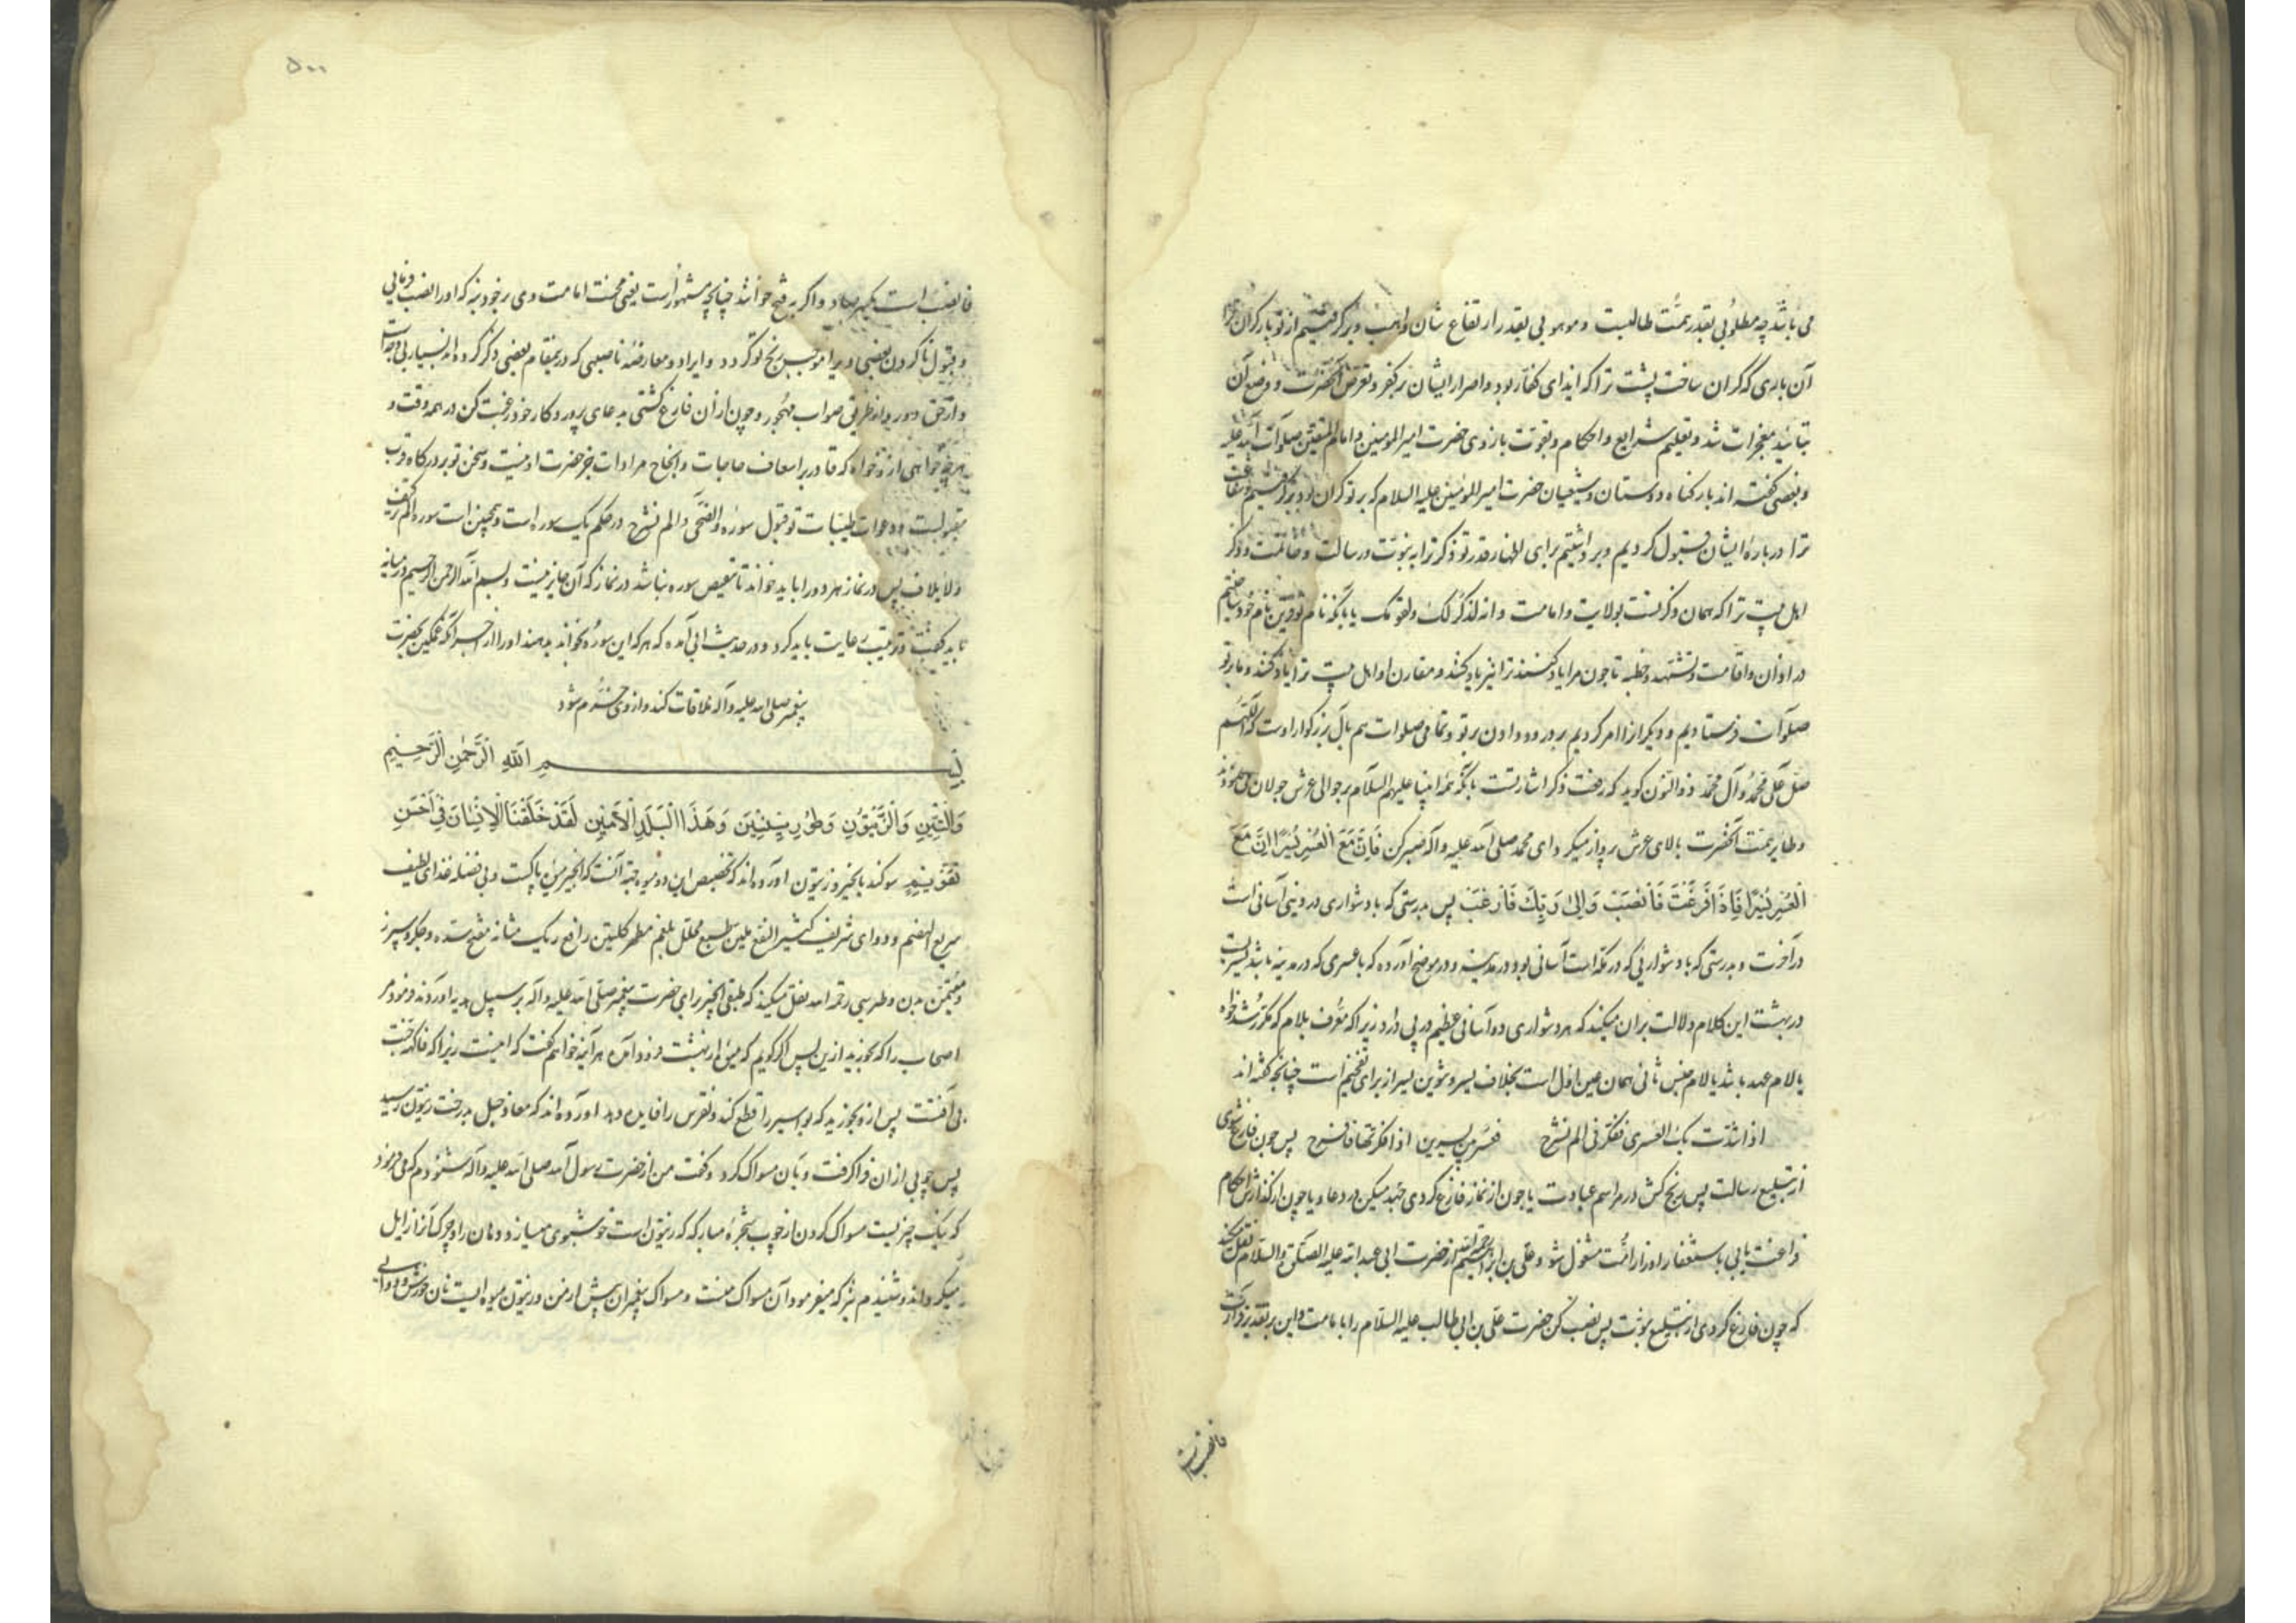 می باشد چه مطلوبی بقدر همت طالبست و موهوبی بقدر ارتفاع شان واهب و برگرفتیم از تو بار گران
آن باری که گران ساخت پشت ترا که ایذای کفار بود و اصرار ایشان بر کفر و تعرض آنحضرت و وضع آن
بتائید معجزات شد و تعلیم شرایع و احکام و بقوت بازوی حضرت امیرالمومنین و امام المتقین صلوات الله علیه
و بعضی گفته اند بار گناه دوستان و شیعیان حضرت امیرالمومنین علیه السلام که بر تو گران بود برگرفتیم و شفاعت
ترا درباره ایشان قبول کردیم و برداشتیم برای اظهار قدر تو ذکر ترا به نبوت و رسالت و خاتمت و ذکر
اهل بیت ترا که همان ذکر تست بولایت و امامت و انه لذکر لک و لقومک یا بآنکه نام تو قرین نام خود ساختیم
در اذان و اقامت و تشهد و خطبه تا چون مرا یاد کنند ترا نیز یاد کنند و مقارن او اهل بیت ترا یاد کنند و ما بر تو
صلوات فرستادیم و دیگرانرا امر کردیم بدرود دادن بر تو و تمامی صلوات هم بآل بزرگوار اوست که اللهم
صل علی محمد و آل محمد ذوالنون گوید که رفعت ذکر اشارتست بآنکه همه انبیا علیهم السلام بر حوالی عرش جولان می نمودند
و طایر همت آنحضرت بالای عرش پرواز میکرد ای محمد صلی الله علیه وآله صبر کن فَاِنَّ مَعَ الْعُسْرِ یُسْرًا اِنَّ مَعَ
الْعُسْرِ یُسْرًا فَاِذَا فَرَغْتَ فَانْصَبْ وَاِلیٰ رَبِّكَ فَارْغَبْ پس بدرستی که با دشواری در دنیی آسانی است
در آخرت و بدرستی که با دشواریی که در مکه است آسانی بود در مدینه و در موضح آورده که با عسری که در مدینه باشد یسریست
در بهشت این کلام دلالت بران میکند که هر دشواری دو آسانی عظیم در پی دارد زیرا که معرف بلام که مکرر شد خواه
بالام عهد باشد یا لام جنس ثانی همان عین اول است بخلاف یسر و تنوین یسر از برای تفخیم است چنانچه گفته اند
اذا اشتدت بک العسری ففکر فی الم نشرح فعسر بین یسرین اذا فکرتها فافرح پس چون فارغ شوی
از تبلیغ رسالت پس رنج کش در مراسم عبادت یا چون از نماز فارغ کردی جهد میکن در دعا و یا چون از گذارش احکام
فراغت یابی باستغفار اوزار امت مشغول شو و علی بن ابراهیم رحمه الله از حضرت ابی عبدالله علیه الصلوة والسلام نقل میکند
که چون فارغ کردی از تبلیغ نبوت پس نصب کن حضرت علی بن ابی طالب علیه السلام را بامامت و این بر تقدیر قرائت
فانصب است
۵۰۰
فانصب است بکسر صاد و اگر بفتح خوانند چنانچه مشهورست یعنی محنت امامت وی بر خود نه که اورا نصب فرمایی
و قبول ناکردن بعضی ویرا موجب رنج تو گردد و ایراد و معارضه ناصبیی که درینمقام بعضی ذکر کرده اند بسیار بی وجه است
و از حق دور و از طریق صواب مهجور و چون ازان فارغ گشتی بدعای پروردگار خود رغبت کن در همه وقت و
هر چه خواهی ازو خواه که قادر بر اسعاف حاجات و انجاح مرادات جز حضرت او نیست و سخن تو بر درگاه قرب
مقبولست و دعوات طیبات تو قبول سوره والضحی و الم نشرح در حکم یک سوره است و همچنین است سوره الم ترکیف
و لایلاف پس در نماز هر دو را باید خواند تا تبعیض سوره نباشد در نماز که آن جایز نیست و بسم الله الرحمن الرحیم در میانه
باید گفت و ترتیب رعایت باید کرد و در حدیث ابی آمده که هر که این سوره بخواند بدهند اورا از اجر آنکه غمگین بحضرت
پیغمبر صلی الله علیه وآله ملاقات کند و از وی خرم شود
بِسْمِ اللهِ الرَّحْمٰنِ الرَّحِیْمِ
وَالتِّینِ وَالزَّیْتُونِ وَطُورِ سِینِینَ وَهٰذَا الْبَلَدِ الْاَمِینِ لَقَدْ خَلَقْنَا الْاِنْسَانَ فِی اَحْسَنِ
تَقْوِیمٍ سوگند بانجیر و زیتون آورده اند که تخصیص این دو میوه بجهة آنست که انجیر میوه پاکست و بی فضله غذای لطیف
سریع الهضم و دوای شریف کثیر النفع ملین طبع محلل بلغم مطهر کلیتین رافع ریک مثانه مفتح سده و جگر و سپرز
و مسمن بدن و طبرسی رحمه الله نقل میکند که طبقی انجیر برای حضرت پیغمبر صلی الله علیه وآله بر سبیل هدیه آوردند فرمود مر
اصحاب را که بخورید ازین پس اگر گویم که میوه از بهشت فرود آمده هر آینه خواهم گفت که اینست زیرا که فاکهه جنت
بی آفتست پس ازو بخورید که بواسیر را قطع کند و نقرس را فایده دهد آورده اند که معاذ جبل بدرخت زیتون رسید
پس چوبی ازان فرا گرفت و بآن مسواک کرد و گفت من از حضرت رسول الله صلی الله علیه وآله شنودم که می فرمود
که نیک چیزیست مسواک کردن از چوب شجره مبارکه که زیتون است خوشبوی میسازد دهان را و چرک آنرا زایل
میگرداند و شنیدم نیز که میفرمود آن مسواک منست و مسواک پیغمبران پیش از من و زیتون میوه ایست نان خورش و دوایی